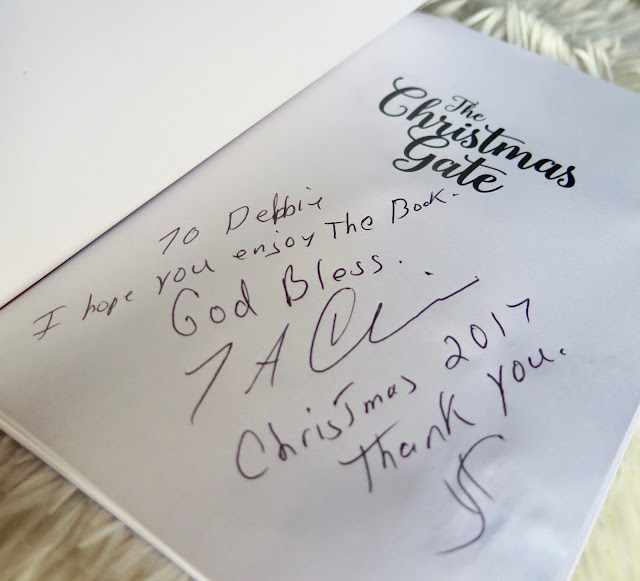 The
Christmas
Gate
To Debbie
I hope you enjoy The Book.
God Bless.
Christmas 2017
Thank you.